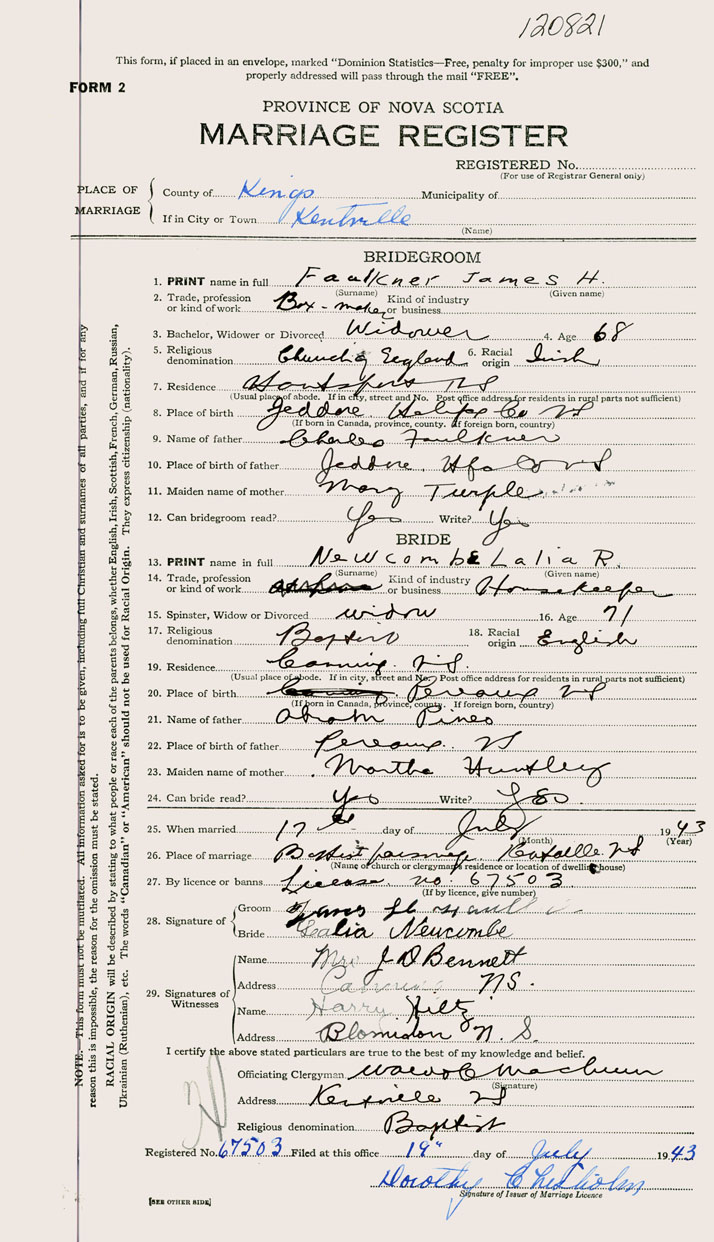 120821
This form, if placed in an envelope, marked "Dominion Statistics—Free, penalty for improper use $300," and
properly addressed will pass through the mail "FREE".
FORM 2
PROVINCE OF NOVA SCOTIA
MARRIAGE REGISTER
REGISTERED No.
(For use of Registrar General only)
PLACE OF MARRIAGE
County of Kings Municipality of
If in City or Town Kentville
(Name)
BRIDEGROOM
1. PRINT name in full Faulkner James H.
(Surname) (Given name)
2. Trade, profession or kind of work Box-maker Kind of industry or business
3. Bachelor, Widower or Divorced Widower 4. Age 68
5. Religious denomination Church of England 6. Racial origin Irish
7. Residence Hantsport NS
(Usual place of abode. If in city, street and No. Post office address for residents in rural parts not sufficient)
8. Place of birth Jeddore Halifax Co NS
(If born in Canada, province, county. If foreign born, country)
9. Name of father Charles Faulkner
10. Place of birth of father Jeddore Hfx Co NS
11. Maiden name of mother Mary Turple
12. Can bridegroom read? Yes Write? Yes
BRIDE
13. PRINT name in full Newcombe Lalia R.
(Surname) (Given name)
14. Trade, profession or kind of work Kind of industry or business Housekeeper
15. Spinster, Widow or Divorced widow 16. Age 71
17. Religious denomination Baptist 18. Racial origin English
19. Residence Canning NS.
(Usual place of abode. If in city, street and No. Post office address for residents in rural parts not sufficient)
20. Place of birth Pereaux NS
(If born in Canada, province, county. If foreign born, country)
21. Name of father Abram Pineo
22. Place of birth of father Pereaux NS
23. Maiden name of mother Martha Huntley
24. Can bride read? Yes Write? Yes.
25. When married 17 day of July 1943
(Month) (Year)
26. Place of marriage Baptist parsonage Kentville NS
(Name of church or clergyman's residence or location of dwelling house)
27. By licence or banns License no. 67503
(If by licence, give number)
28. Signature of
Groom James H
Bride Lalia Newcombe
29. Signatures of Witnesses
Name Mrs J D Bennett
Address Canning NS.
Name Harry Hiltz
Address Blomidon N.S.
I certify the above stated particulars are true to the best of my knowledge and belief.
Officiating Clergyman
(Signature)
Address Kentville NS
Religious denomination Baptist
Registered No. 67503 Filed at this office 19" day of July 1943
Dorothy Chisholm
Signature of Issuer of Marriage Licence
[SEE OTHER SIDE]
NOTE.—This form must not be mutilated. All information asked for is to be given, including full Christian and surnames of all parties, and if for any
reason this is impossible, the reason for the omission must be stated.
RACIAL ORIGIN will be described by stating to what people or race each of the parents belongs, whether English, Irish, Scottish, French, German, Russian,
Ukrainian (Ruthenian), etc. The words "Canadian" or "American" should not be used for Racial Origin. They express citizenship (nationality).